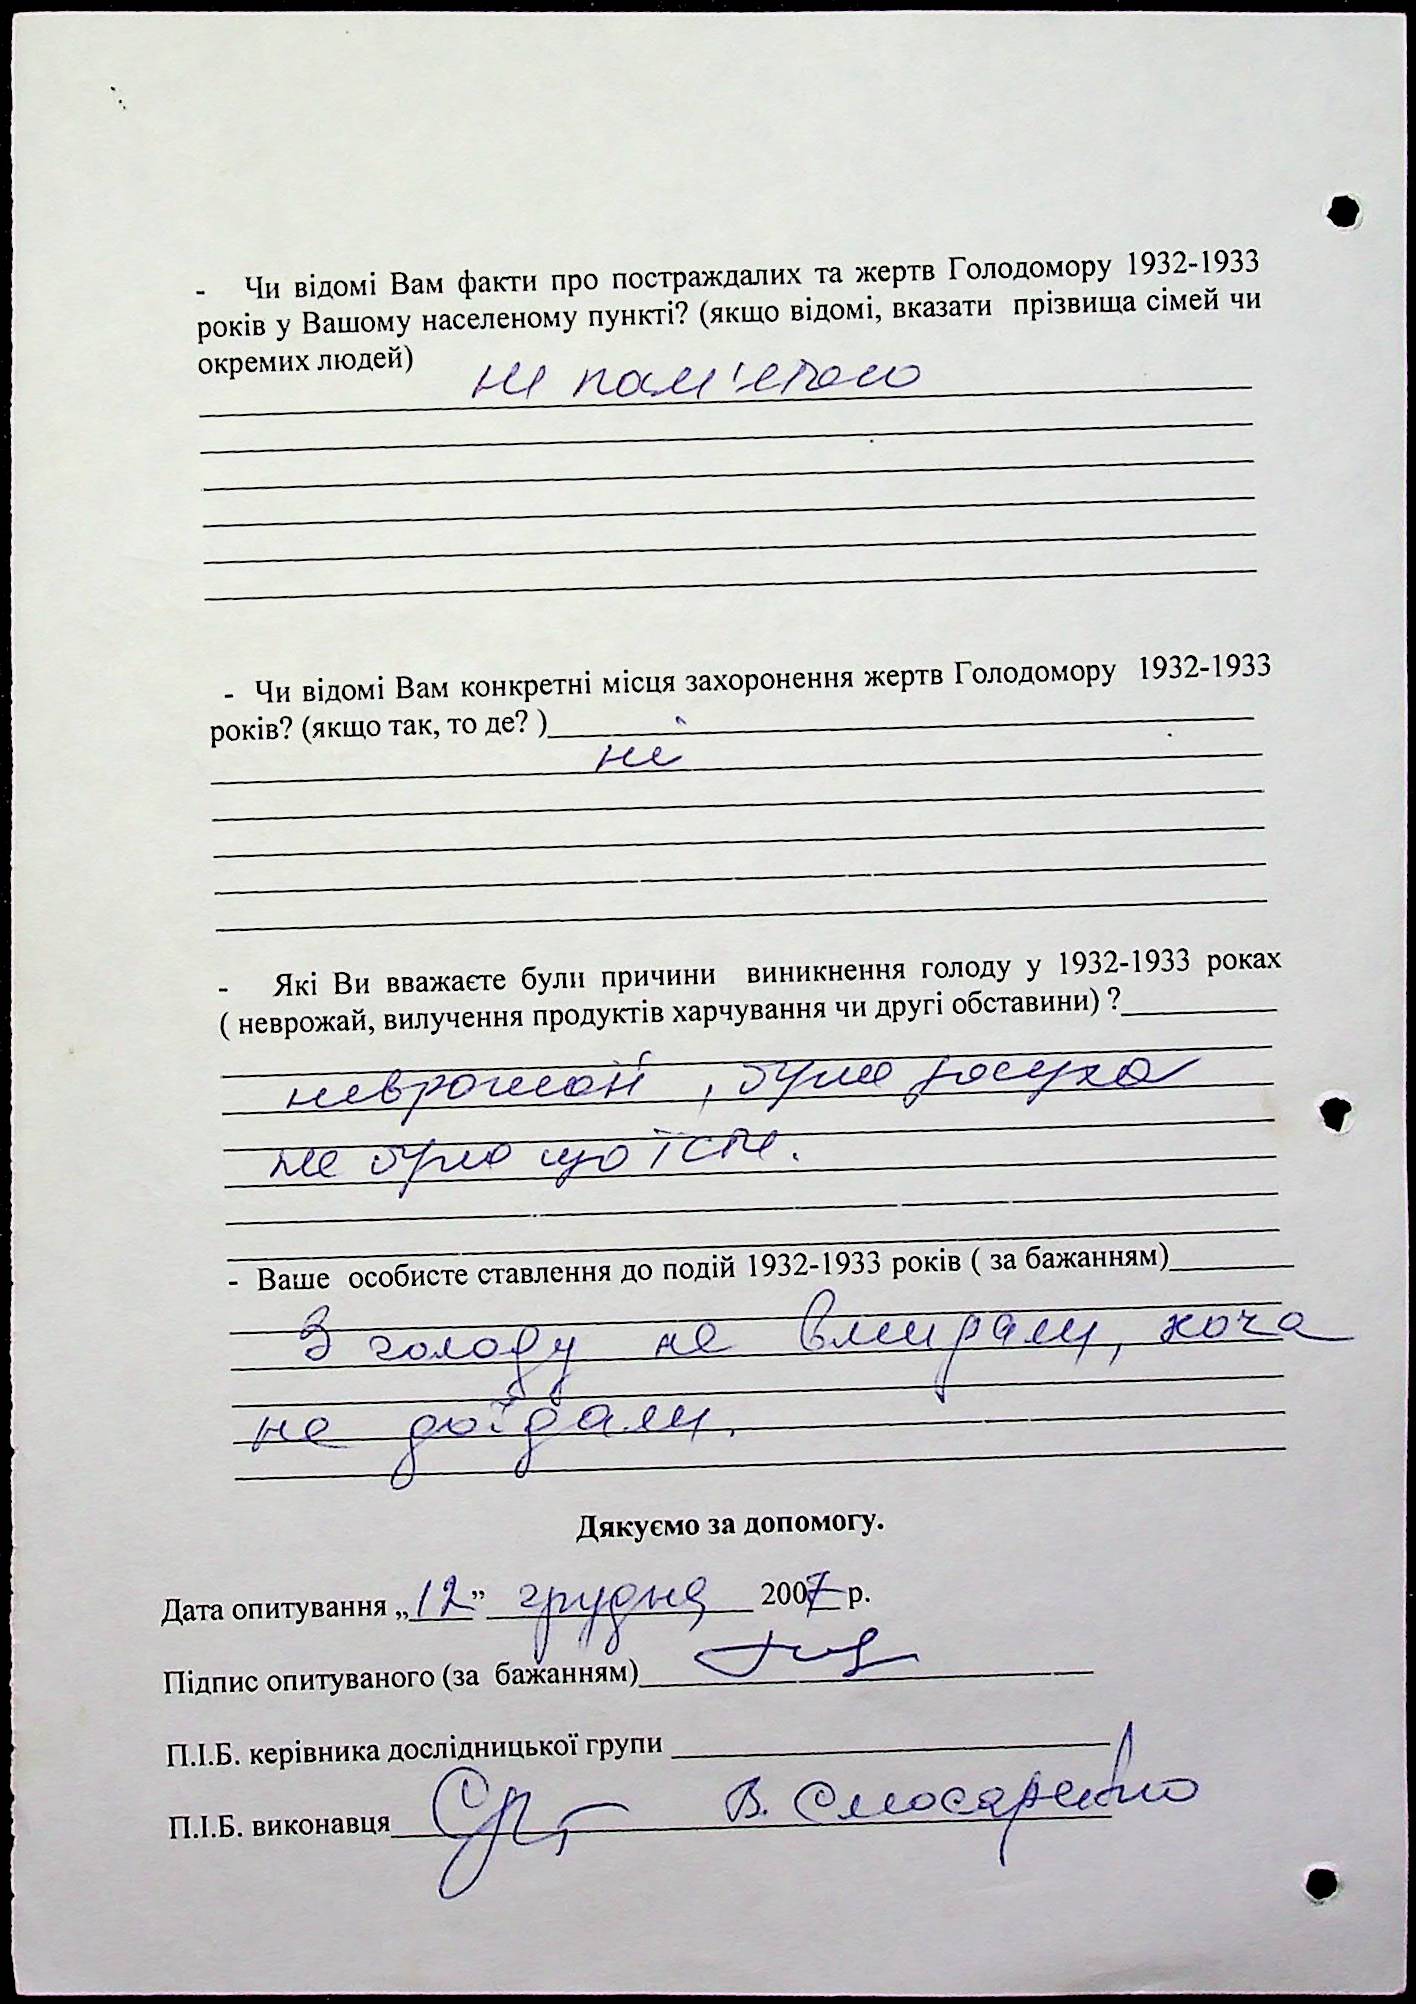 - Чи відомі Вам факти про постраждалих та жертв Голодомору 1932-1933
років у Вашому населеному пункті? (якщо відомі, вказати прізвища сімей чи
окремих людей)
не пам'ятаю
- Чи відомі Вам конкретні місця захоронення жертв Голодомору 1932-1933
років? (якщо так, то де? )
ні
- Які Ви вважаєте були причини виникнення голоду у 1932-1933 роках
( неврожай, вилучення продуктів харчування чи другі обставини) ?
неврожай, була засуха
не було що їсти.
- Ваше особисте ставлення до подій 1932-1933 років ( за бажанням)
З голоду не вмирали, хоча
не доїдали.
Дякуємо за допомогу.
Дата опитування „12” грудня 2007 р.
Підпис опитуваного (за бажанням)
П.І.Б. керівника дослідницької групи
П.І.Б. виконавця В. Слюсаренко